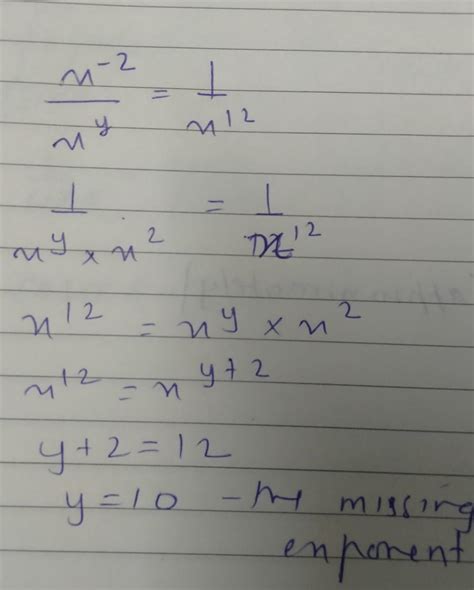 x⁻² / x^y = 1 / x¹²
1 / x^y × x² = 1 / x¹²
x¹² = x^y × x²
x¹² = x^y+2
y+2=12
y=10 - the missing
exponent